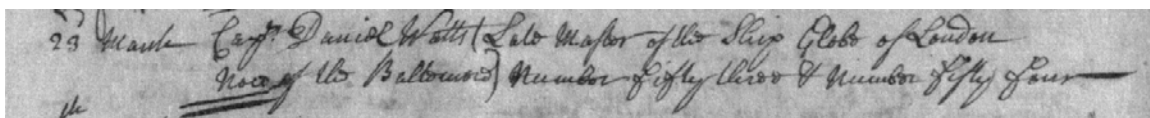 23 March Capt. Daniel Watts (Late Master of the Ship Globe of London
Now of the Baltemore) Number fifty three & Number fifty four
th